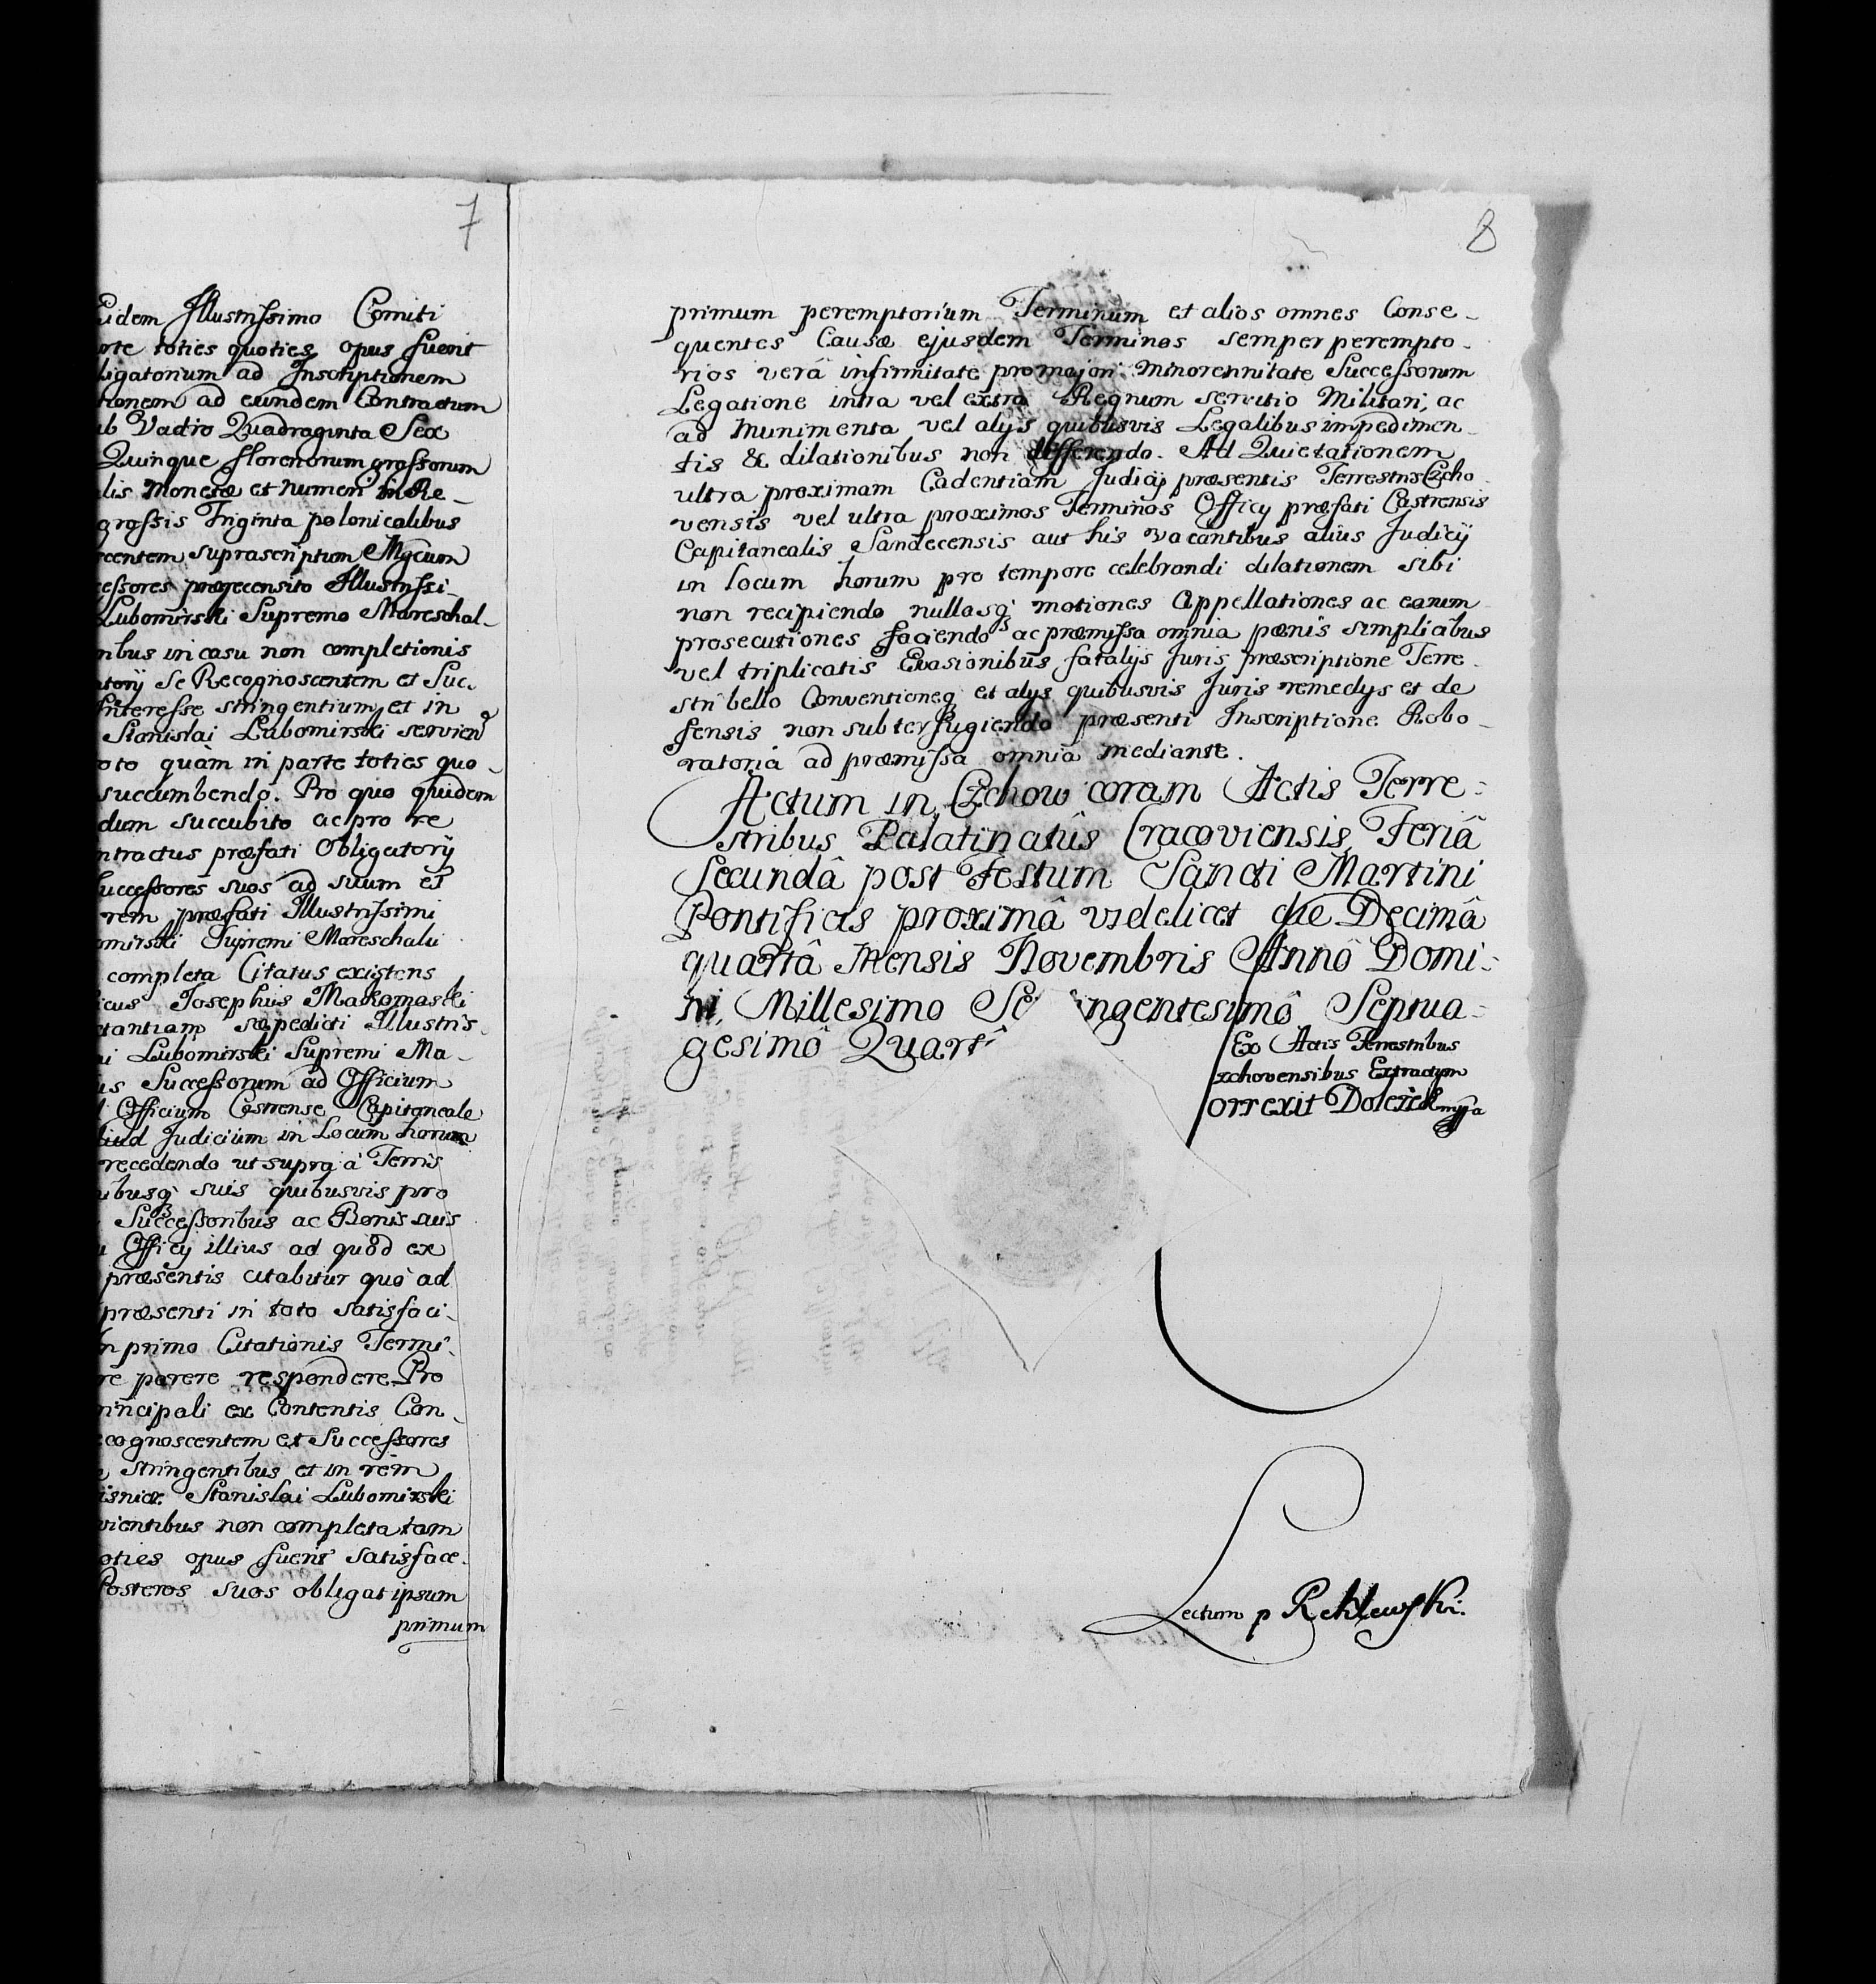 7
Eidem Illustrissimo Comiti
toties quoties opus fuerit
ligatorium ad Inscriptionem
tionem ad eundem Contractum
ub Vadio Quadraginta Sex
Quinque florenorum grossorum
lis Monetæ et numeri in Re-
grossis Triginta polonicalibus
centem suprascriptum Mgcum
cessores præjecensito Illustrissi-
Lubomirski Supremo Mareschal-
nibus in casu non completionis
torij Se Recognoscentem et Suc.
Interesse stringentium et in
Stanislai Lubomirski servien
oto quàm in parte toties quo-
succumbendo. Pro quo quidem
dum succubito ac pro re
ntractus præfati Obligatorÿ
uccessores suos ad suum et
rem præfati Illustrissimi
omirski Supremi Mareschalci
completa Citatus existens
icus Josephus Makomaski
ctantiam sæpedicti Illustris-
ai Lubomirski Supremi Ma-
us Successorum ad Officium
Officium Castrense Capitaneale
liud Judicium in Locum horum
recedendo ut supra à Terris
ibusq suis quibusvis pro
Successoribus ac Bonis suis
Officÿ illius ad quod ex
præsentis citabitur quo ad
præsenti in toto satisfaci-
n primo Citationis Termi-
re parere respondere. Pro
rincipali ex Contentis Con-
cognoscentem et Successores
stringentibus et in rem
isnicz Stanislai Lubomirski
vientibus non completa tam
oties opus fuerit satisface-
Posteros suos obligat ipsum
primum
8
primum peremptorium Terminum et alios omnes Conse-
quentes Causæ ejusdem Terminos semper perempto-
rios verâ infirmitate pro majori Minorennitate Successorum
Legatione intra vel extra Regnum servitio Militari, ac
ad Munimenta vel alÿs quibusvis Legalibus impedimen-
tis & dilationibus non differendo. Ad Quietationem
ultra proximam Cadentiam Judicÿ præsentis Terrestris Czcho
vensis vel ultra proximos Terminos Officÿ præfati Castrensis
Capitanealis Sandecensis aut his vacantibus alius Judicÿ
in locum horum pro tempore celebrandi dilationem sibi
non recipiendo nullasq motiones Appellationes ac earum
prosecutiones faciendo ac præmissa omnia pænis simplicibus
vel triplicatis Evasionibus fatalÿs Juris præscriptione Terre-
stri bello Conventioneq et alÿs quibusvis Juris remedÿs et de
fensis non subterfugiendo præsenti Inscriptione Robo-
ratoria ad præmissa omnia mediante.
Actum in Czchow coram Actis Terre-
stribus Palatinatûs Cracoviensis Feriâ
Secundâ post Festum Sancti Martini
Pontificis proximâ videlicet die Decimâ
quartâ Mensis Novembris Annô Domi-
ni Millesimo Se ingentesimô Septua-
gesimô Quart
Ex Actis Terrestribus
zchovensibus Extractum
orrexit
Lectum p Reklewski.